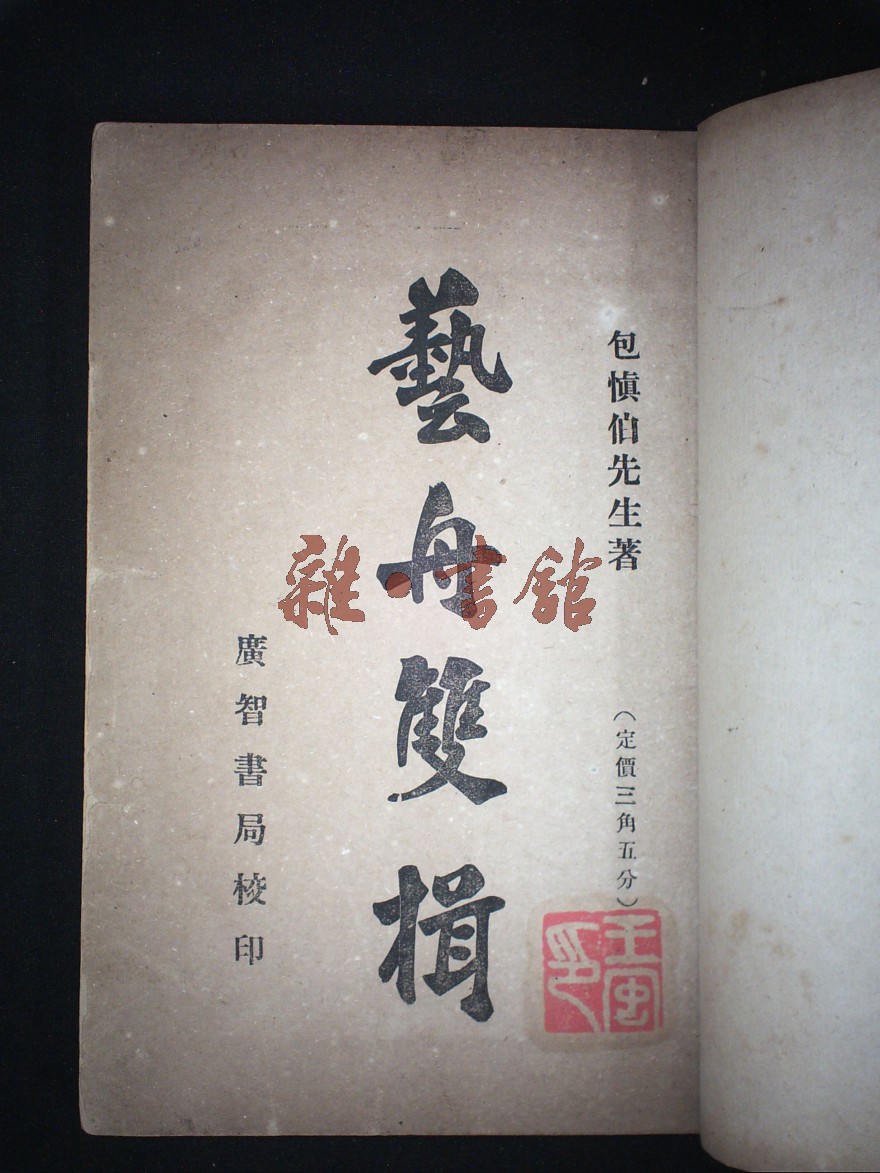 包慎伯先生著
(定價三角五分)
藝舟雙楫
廣智書局校印
雜·書館